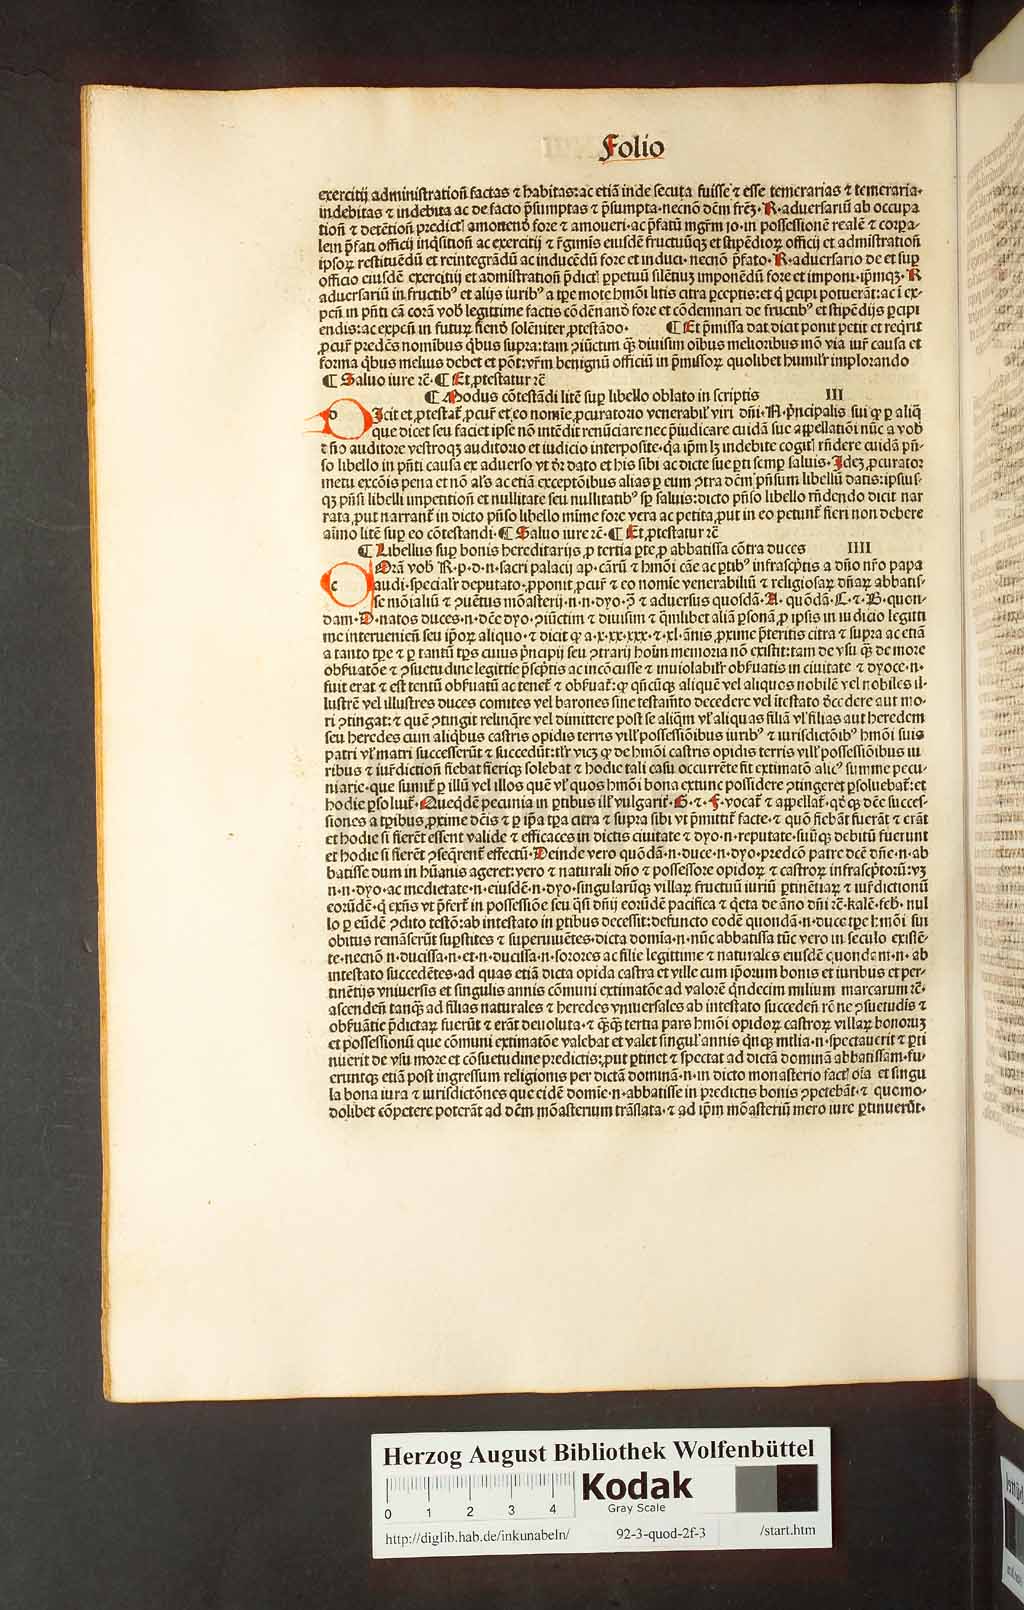 Folio
exercitij administration̄ factas ⁊ habitas: ac etiā inde secuta fuisse ⁊ esse temerarias ⁊ temeraria·
indebitas ⁊ indebita ac de facto p̄sumptas ⁊ p̄sumpta· necnō dc̄m frēꝫ· R· aduersariū ab occupa
tion̄ ⁊ detētion̄ predict amouend̄ fore ⁊ amoueri· ac p̄fatū mgr̄m jo· in possessionē realē ⁊ corꝑa-
lem p̄fati officij inq̄sition̄ ac exercitij ⁊ r̄giminis eiusdē fructuūqꝫ et stipēdioꝝ officij et admistration̄
ipsoꝝ restituēdū et reintegrādū ac inducēdū fore et induci· necnō p̄fato· R· aduersario de et suꝑ
officio eiusdē exercitij et admistration̄ p̄dict ꝑpetuū silētiuꝫ imponēdū fore et imponi· ip̄mqꝫ· R
aduersariū in fructibꝰ et alijs iuribꝰ a tꝑe mote hmōi litis citra ꝑceptis: et q̄ ꝑcipi potuerāt: ac ī ex-
pen̄ in pn̄ti cā corā vob legittime factis cōdēnand̄ fore et cōdemnari de fructibꝰ et stipēdijs ꝑcipi
endis: ac expen̄ in futuꝝ fiend̄ solēniter ꝓtestādo· ¶ Et p̄missa dat dicit ponit petit et req̄rit
ꝓcur̄ predēs nomibus q̄bus supra: tam ꝯiūctim qꝫ diuisim oībus melioribus mō via iur̄ causa et
forma q̄bus melius debet et pōt: vr̄m benignū officiū in p̄missoꝝ quolibet humilr̄ implorando
¶ Saluo iure ⁊c̄· ¶ Et ꝓtestatur ⁊c̄
¶ Modus cōtestādi litē suꝑ libello oblato in scriptis III
DIcit et ꝓtestat̄ ꝓcur̄ et eo nomīe ꝓcuratorio venerabil viri dn̄i· N· p̄ncipalis sui ꝙ ꝑ aliq̄
que dicet seu faciet ipse nō intēdit renūciare nec p̄iudicare cuidā sue appellatiōi nūc a vob
⁊ dn̄o auditore vestroqꝫ auditorio et iudicio interposite· q̄a ip̄m lꝫ indebite cogit rn̄dere cuidā pn̄-
so libello in pn̄ti causa ex aduerso vt dr̄ dato et his sibi ac dicte sue ꝑti semꝑ saluis· Idez ꝓcurator
metu excōis pena et nō als ac etiā exceptōibus alias ꝑ eum ꝯtra dc̄m pn̄sum libellū datis: ipsius-
qꝫ pn̄si libelli impetition̄ et nullitate seu nullitatibꝰ sꝑ saluis: dicto pn̄so libello rn̄dendo dicit nar
rata ꝓut narrant̄ in dicto pn̄so libello mīme fore vera ac petita ꝓut in eo petunt̄ fieri non debere
aīmo litē suꝑ eo cōtestandi· ¶ Saluo iure ⁊c̄· ¶ Et ꝓtestatur ⁊c̄
¶ Libellus suꝑ bonis hereditarijs ꝓ tertia ꝑte ꝓ abbatissa cōtra duces IIII
COrā vob R· p· d· n· sacri palacij ap· cārū ⁊ hmōi cāe ac ꝑtibꝰ infrascp̄tis a dn̄o nr̄o papa
audi· specialr̄ deputato· ꝓponit ꝓcur̄ ⁊ eo nomīe venerabiliū ⁊ religiosaꝝ dn̄aꝝ abbatis-
se mōialiū ⁊ ꝯuētus mōasterij· n· n· dyo· ꝯ̄ ⁊ aduersus quosdā· A· quōdā· C· ⁊· B· quon-
dam· D· natos duces· n· dc̄e dyo· ꝯiūctim ⁊ diuisim ⁊ q̄mlibet aliā ꝑsonā ꝓ ipsis in iudicio legitti
me interuenien̄ seu ip̄oꝝ aliquo· ⁊ dicit ꝙ a· x· xx· xxx· ⁊· xl· ānis ꝓxime p̄teritis citra ⁊ supra ac etiā
a tanto tꝑe ⁊ ꝑ tantū tꝑs cuius p̄ncipij seu ꝯtrarij hoīm memoria nō existit: tam de vsu qꝫ de more
obẜuatōe ⁊ ꝯsuetudine legittīe p̄scp̄tis ac incōcusse ⁊ inuiolabilr̄ obẜuatis in ciuitate ⁊ dyoce· n·
fuit erat ⁊ est tentū obẜuatū ac tenet̄ ⁊ obẜuat̄: ꝙ qn̄cūqꝫ aliquē vel aliquos nobilē vel nobiles il-
lustrē vel illustres duces comites vel barones sine testamt̄o decedere vel ītestato dēcedere aut mo-
ri ꝯtingat: ⁊ quē ꝯtingit relinq̄re vel dimittere post se aliq̄m vl̄ aliquas filiā vl̄ filias aut heredem
seu heredes cum aliqbus castris opidis terris vill possessiōibus iuribꝰ ⁊ iurisdictōibꝰ hmōi suis
patri vl̄ matri successerūt ⁊ succedūt: tl̄r vicꝫ ꝙ de hmōi castris opidis terris vill possessiōibus iu
ribus ⁊ iur̄diction̄ fiebat fieriqꝫ solebat ⁊ hodie tali casu occurrēte fit extimatō alicꝰ summe pecu-
niarie· que sumit̄ ꝑ illū vel illos quē vl̄ quos hmōi bona extunc possidere ꝯtingeret ꝑsoluebat̄: et
hodie ꝑsoluit̄· Queq̄dē pecunia in ꝑtibus ill vulgarit̄· G· ⁊· F· vocat̄ ⁊ appellat̄· qr̄ qꝫ dc̄e succes-
siones a tꝑibus ꝓxime dc̄is ⁊ ꝑ ip̄a tꝑa citra ⁊ supra sibi vt p̄mittit̄ facte· ⁊ quō fiebāt fuerāt ⁊ erāt
et hodie si fierēt essent valide ⁊ efficaces in dictis ciuitate ⁊ dyo· n· reputate· suūqꝫ debitū fuerunt
et hodie si fierēt ꝯseq̄rent̄ effectū· Deinde vero quōdā· n· duce· n· dyo· predcō patre dcē dn̄e· n· ab
batisse dum in hūanis ageret: vero ⁊ naturali dn̄o ⁊ possessore opidoꝝ ⁊ castroꝝ infrascp̄torū: vꝫ
n· n· dyo· ac medietate· n· eiusdē· n· dyo· singularūqꝫ villaꝝ fructuū iuriū ꝑtinētiaꝝ ⁊ iur̄dictionū
eorūdē· q̄ exn̄s vt p̄fert̄ in possessiōe seu q̄si dn̄ij eorūdē pacifica ⁊ q̄eta de āno dn̄i ⁊c̄· kalē· feb· nul
lo ꝑ eūdē ꝯdito testō: ab intestato in ꝑtibus decessit: defuncto eodē quondā· n· duce· tꝑe hmōi sui
obitus remāserūt suꝑstites ⁊ superuiuētes· dicta domīa· n· nūc abbatissa tūc vero in seculo existē-
te· necnō n· ducissa· n· et· n· ducissa· n· sorores ac filie legittime ⁊ naturales eiusdē quondam· n· ab
intestato succedētes· ad quas etiā dicta opida castra et ville cum ip̄orum bonis et iuribus et per-
tinētijs vniuersis et singulis annis cōmuni extimatōe ad valorē q̄ndecim milium marcarum ⁊c̄·
ascenden̄ tanqꝫ ad filias naturales ⁊ heredes vniuersales ab intestato succeden̄ rōne ꝯsuetudis ⁊
obẜuātie p̄dictaꝝ fuerūt ⁊ erāt deuoluta· ⁊ qꝫqꝫ tertia pars hmōi opidoꝝ castroꝝ villaꝝ bonoruꝫ
et possessionū que cōmuni extimatōe valebat et valet singul annis qn̄qꝫ milia· n· spectauerit ⁊ ꝑti
nuerit de vsu more et cōsuetudine predictis: ꝓut ꝑtinet ⁊ spectat ad dictā dominā abbatissam· fu-
eruntqꝫ etiā post ingressum religionis per dictā dominā· n· in dicto monasterio fact oīa et singu
la bona iura ⁊ iurisdictōnes que eidē domīe· n· abbatisse in predictis bonis ꝯpetebāt· ⁊ quomo-
dolibet cōpetere poterāt ad dc̄m mōasterium trāslata· ⁊ ad ip̄m mōasteriū mero iure ꝑtinuerūt·
Herzog August Bibliothek Wolfenbüttel
0 1 2 3 4
Kodak
Gray Scale
http://diglib.hab.de/inkunabeln/ 92-3-quod-2f-3 /start.htm